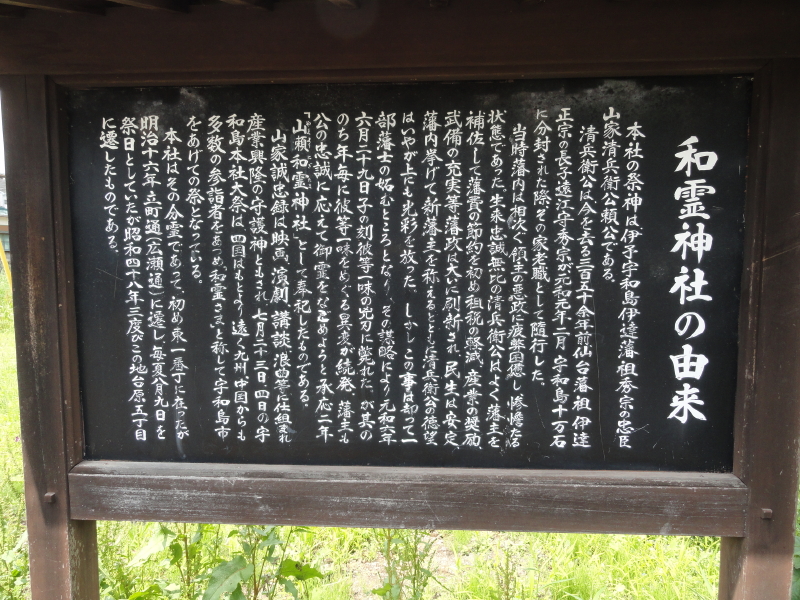 和霊神社の由来
本社の祭神は伊予宇和島伊達藩祖秀宗の忠臣
山家清兵衛公頼公である。
清兵衛公は今を去る三百五十余年前仙台藩祖伊達
正宗の長子遠江守秀宗が元和元年二月宇和島十万石
に分封された際その家老職として随行した。
当時藩内は相次ぐ領主の悪政に疲弊困憊し惨憺たる
状態であった生来忠誠無比の清兵衛公はよく藩主を
補佐して藩費の節約を初め租税の軽減、産業の奨励、
武備の充実等藩政は大いに刷新され民生は安定、
藩内挙げて新藩主を称えるとともに清兵衛公の徳望
はいやが上にも光彩を放った。しかしこの事は却って一
部藩士の妬むところとなり、その謀略により元和六年
六月二十九日子の刻彼等一味の兇刃に斃れた。が其の
のち年毎に彼等一味をめぐる異変が続発、藩主も
公の忠誠に応えて御霊をなごめようと承応二年
「山頼和霊神社」として奉祀したものである。
山家誠忠録は映画、演劇、講談、浪曲等に仕組まれ
産業興隆の守護神ともされ七月二十三日、四日の宇
和島本社大祭は四国はもとより遠く九州、中国からも
多数の参詣者をあつめ「和霊さま」と称して宇和島市
をあげての祭となっている。
本社はその分霊であって、初め東一番丁に在ったが
明治十六年立町通（広瀬通）に遷し毎夏八月九日を
祭日としていたが昭和四十八年三度びこの地台原五丁目
に遷したものである。